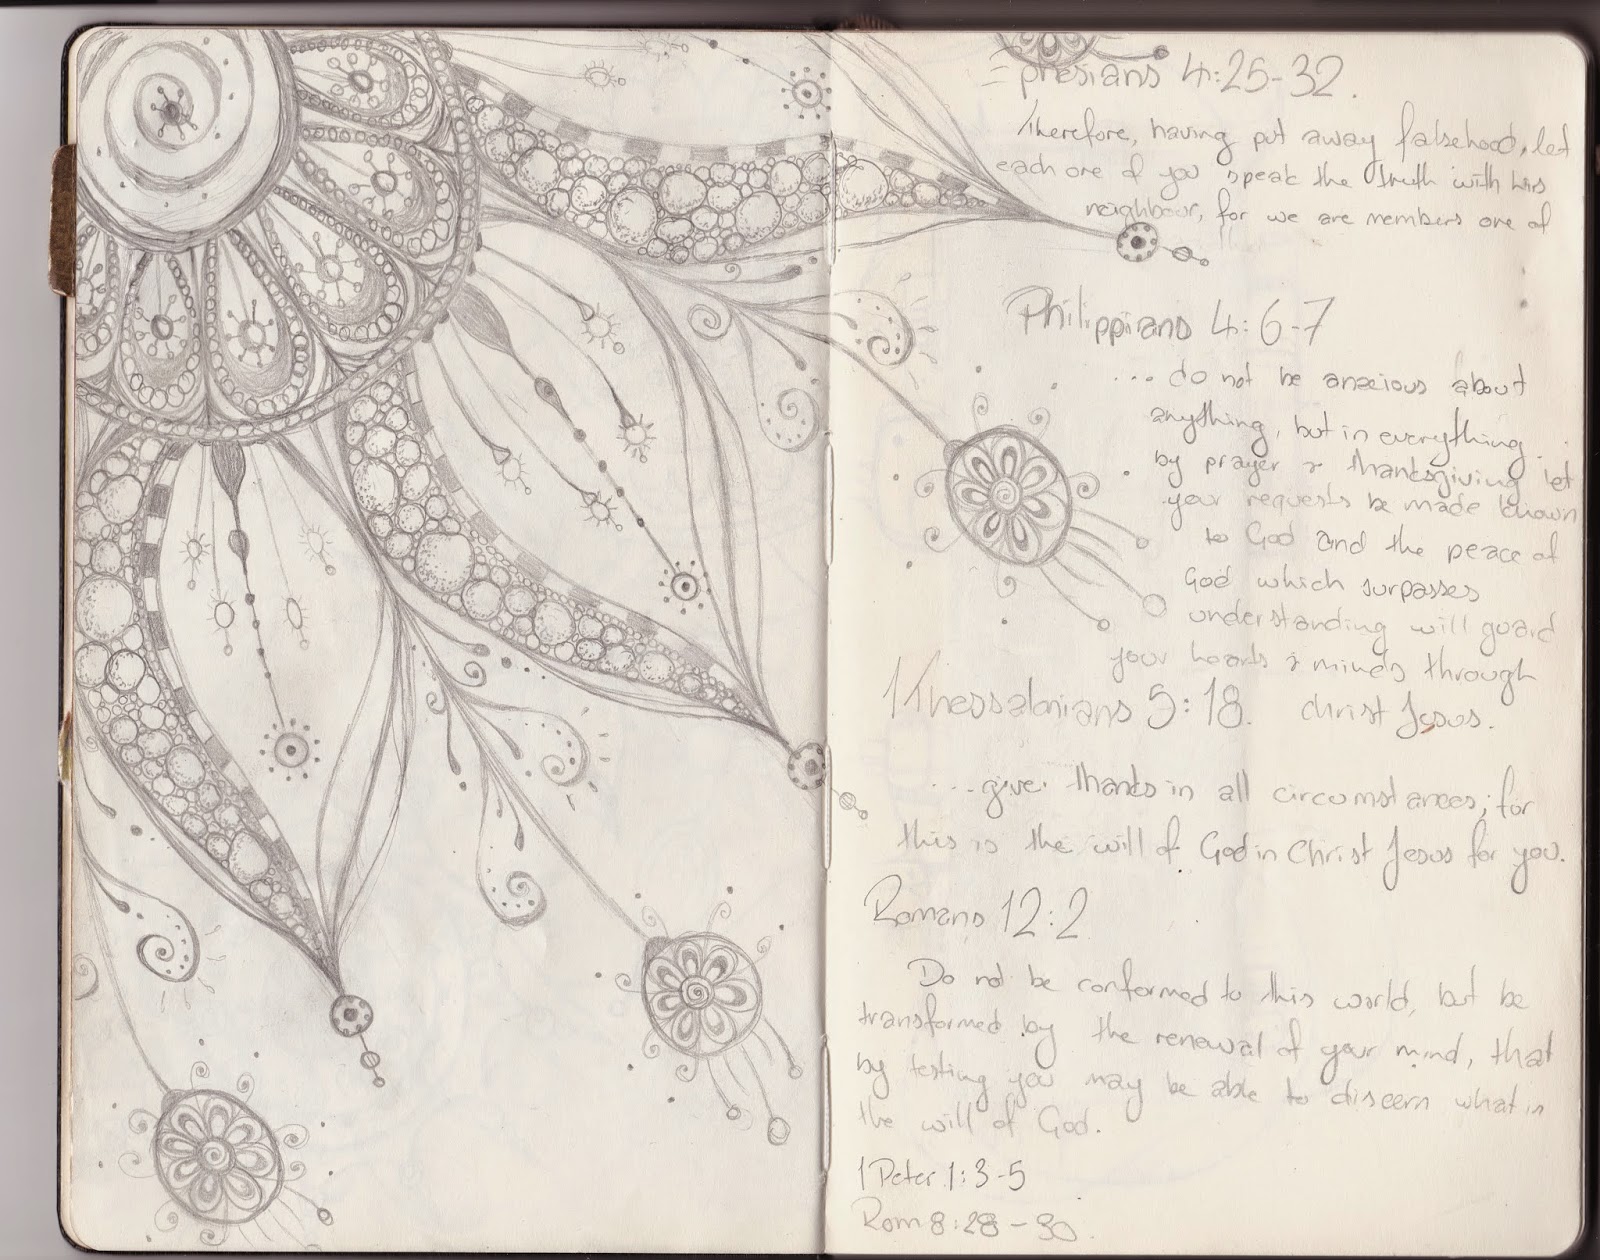 Ephesians 4:25-32.
Therefore, having put away falsehood, let
each one of you speak the truth with his
neighbour, for we are members one of
Philippians 4:6-7
... do not be anxious about
anything, but in everything
by prayer & thanksgiving let
your requests be made known
to God and the peace of
God which surpasses
understanding will guard
your hearts & minds through
Christ Jesus.
1 Thessalonians 5:18.
...give thanks in all circumstances; for
this is the will of God in Christ Jesus for you.
Romans 12:2
Do not be conformed to this world, but be
transformed by the renewal of your mind, that
by testing you may be able to discern what is
the will of God.
1 Peter 1:3-5
Rom 8:28-30.